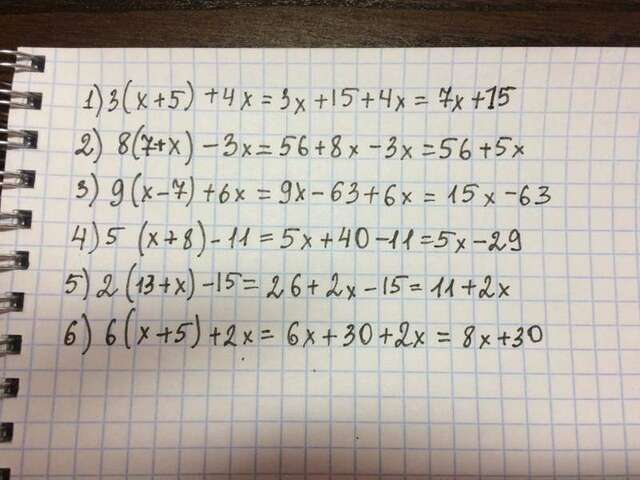 1) 3(x+5) +4x = 3x+15+4x = 7x+15
2) 8(7+x) -3x = 56+8x-3x = 56+5x
3) 9(x-7)+6x = 9x-63+6x = 15x-63
4) 5 (x+8)-11 = 5x+40-11=5x-29
5) 2(13+x)-15= 26+2x-15= 11+2x
6) 6(x+5)+2x= 6x+30+2x = 8x+30